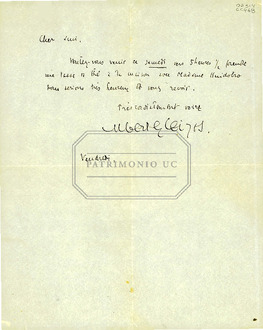 Cher ami.
Voulez-vous venir ce samedi vers 5 heures ½ prendre
une tasse de thé à la maison avec Madame Huidobro
nous serions très heureux de vous revoir.
Très cordialement votre
Albert Gleizes.
Vendredi
PATRIMONIO UC